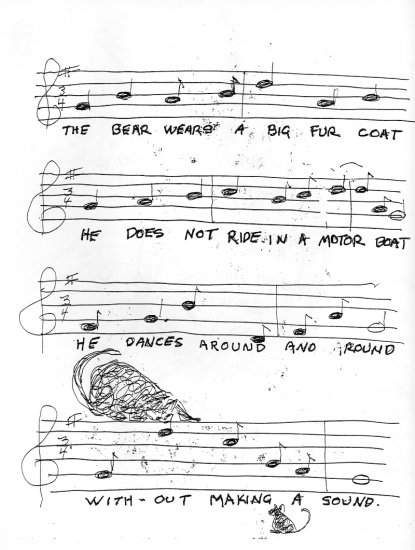 3
4
THE BEAR WEARS A BIG FUR COAT
3
4
HE DOES NOT RIDE IN A MOTOR BOAT
3
4
HE DANCES AROUND AND ROUND
3
4
WITH-OUT MAKING A SOUND.